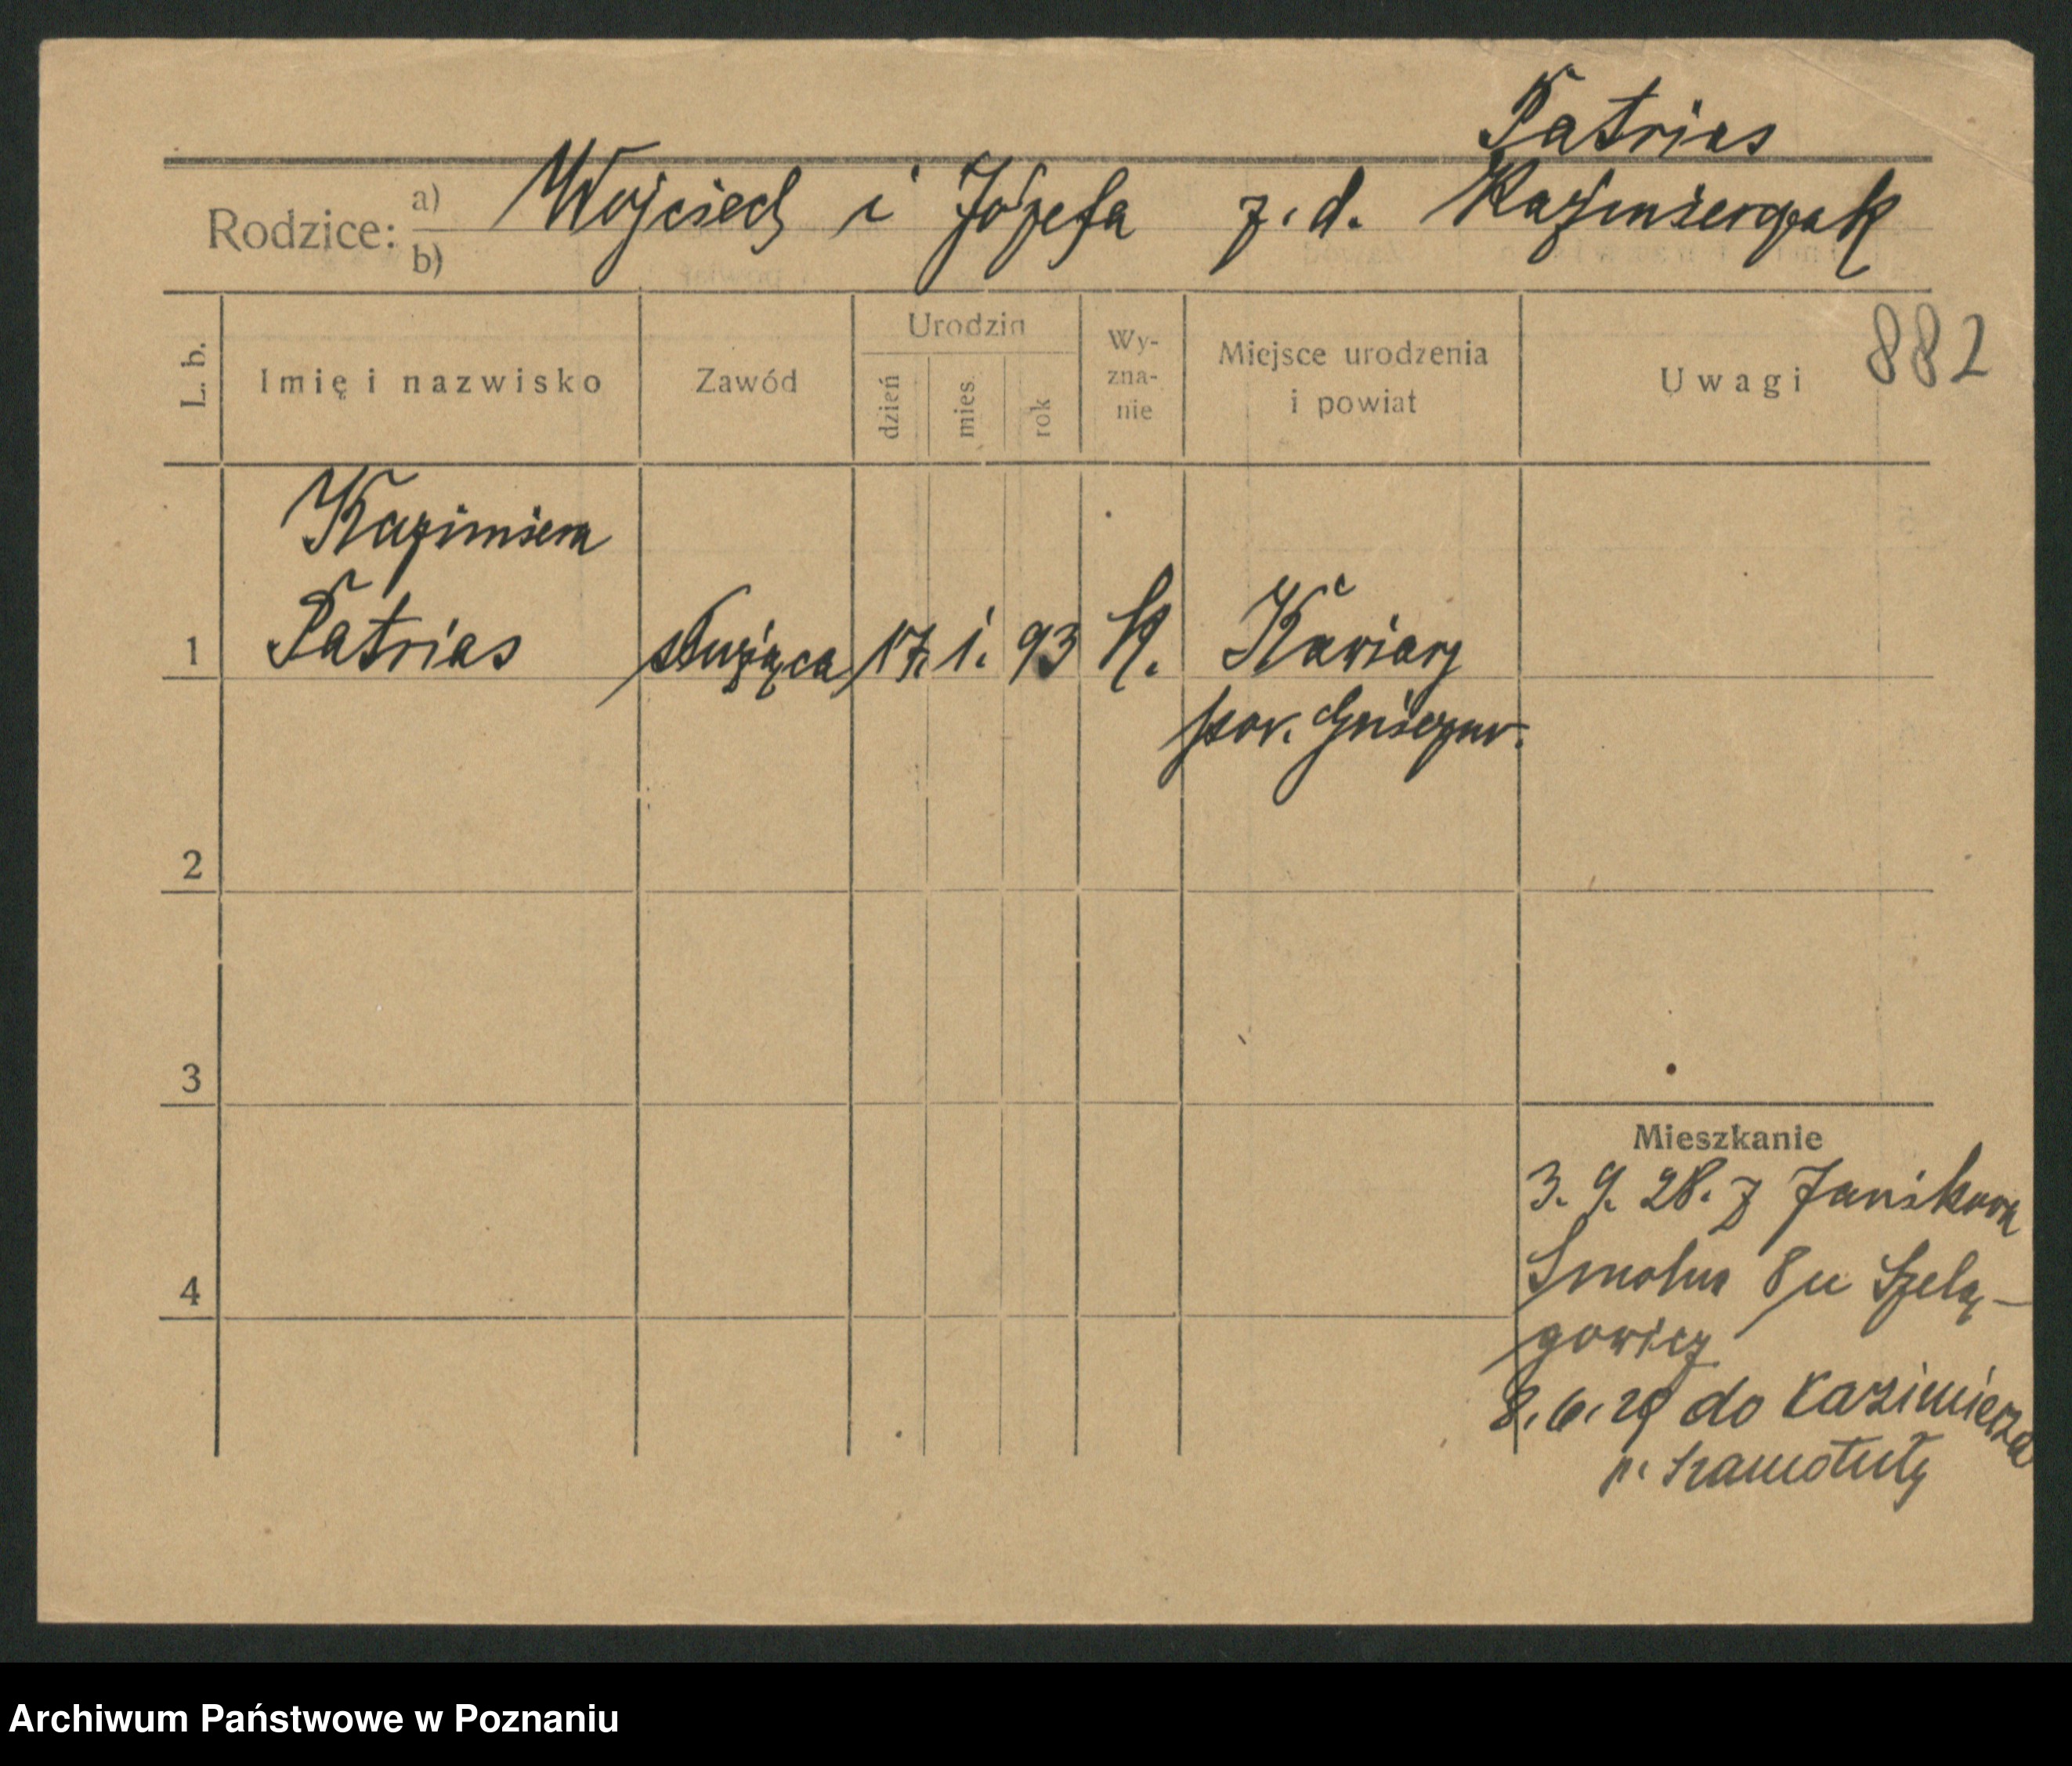 Patrias
Rodzice: a) Wojciech i Józefa z. d. Kaźmierczak
b)
882
L. b. Imię i nazwisko Zawód Urodzin dzień mies. rok Wy-zna-nie Miejsce urodzenia i powiat Uwagi
Kazimiera
1 Patrias służąca 17. 1. 93 K.
pow. Gnieznw.
2
3
Mieszkanie
3. 9. 28. z Janikowa
4 8 u Szelą-
gowicz
8. 6. 29 do Kazimierza
p. Szamotuły
Archiwum Państwowe w Poznaniu